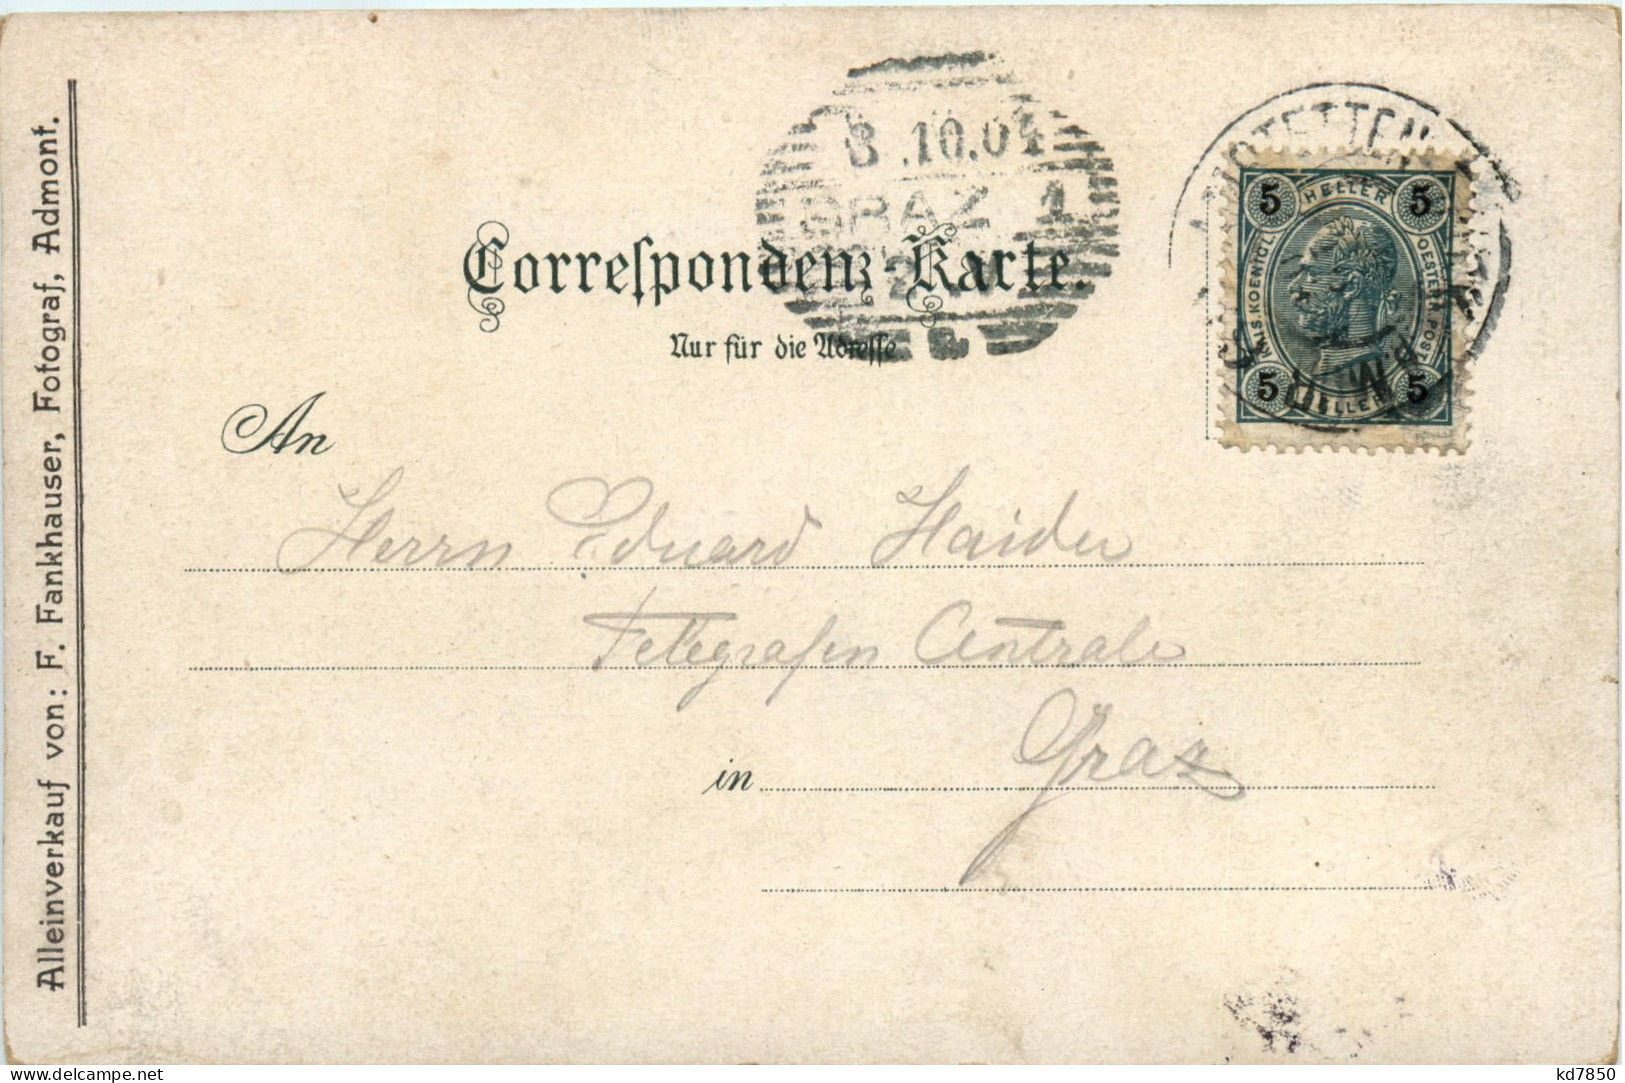 Alleinverkauf von: F. Fankhauser, Fotograf, Admont.
8.10.01
GRAZ 1
Correspondenz-Karte.
Nur für die Adresse
5 HELLER 5
KAIS. KOENIGL. OESTERR. POST
5 HELLER 5
An
Herrn Eduard Haider
Telegrafen Centrale
in Graz
kd7850